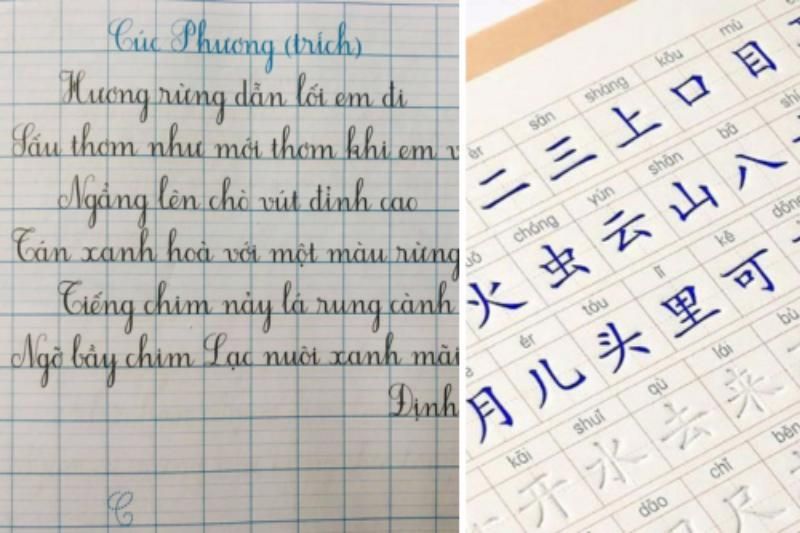 Cúc Phương (trích)
Hương rừng dẫn lối em đi
Sấu thơm như mới thơm khi em
Ngẩng lên chò vút đỉnh cao
Tán xanh hoà với một màu rừng
Tiếng chim nảy lá rung cành
Ngỡ bầy chim Lạc nuôi xanh mãi
Định
C
èr sān shàng kǒu mù
二 三 上 口 目
chóng yún shān bā shí
火 虫 云 山 八
ér tóu lǐ kě
月 儿 头 里 可
kāi shuǐ qù lái bù
开 水 去 来
dāo chǐ běn
尺